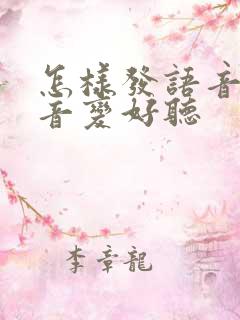 怎樣發語音
音變好聽
李章龍